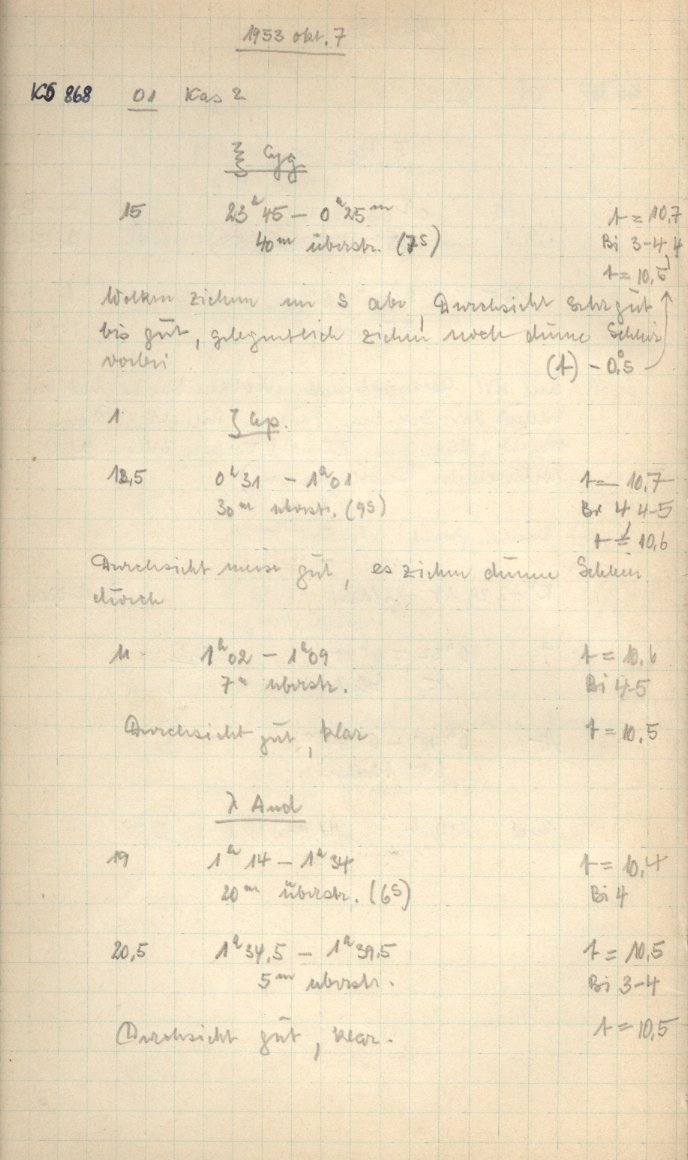 1953 okt. 7
KB 868 01 Kas 2
ξ Cyg
15 23ʰ45 – 0ʰ25ᵐ t = 10,7
40ᵐ überstr. (7S) Bi 3-4, 4
t = 10,5
Wolken ziehen im S ab, Durchsicht sehr gut
bis gut, gelegentlich ziehen noch dünne Schleier
vorbei (t) – 0°,5
1 ζ Cep.
12,5 0ʰ31 – 1ʰ01 t = 10,7
30ᵐ überstr. (9S) Bi 4 4-5
t = 10,6
Durchsicht meist gut, es ziehen dünne Schleier
durch
11 1ʰ02 – 1ʰ09 t = 10,6
7ᵐ überstr. Bi 4-5
Durchsicht gut, klar t = 10,5
λ And
19 1ʰ14 – 1ʰ34 t = 10,4
20ᵐ überstr. (6S) Bi 4
20,5 1ʰ34,5 – 1ʰ39,5 t = 10,5
5ᵐ überstr. Bi 3-4
Durchsicht gut, klar. t = 10,5